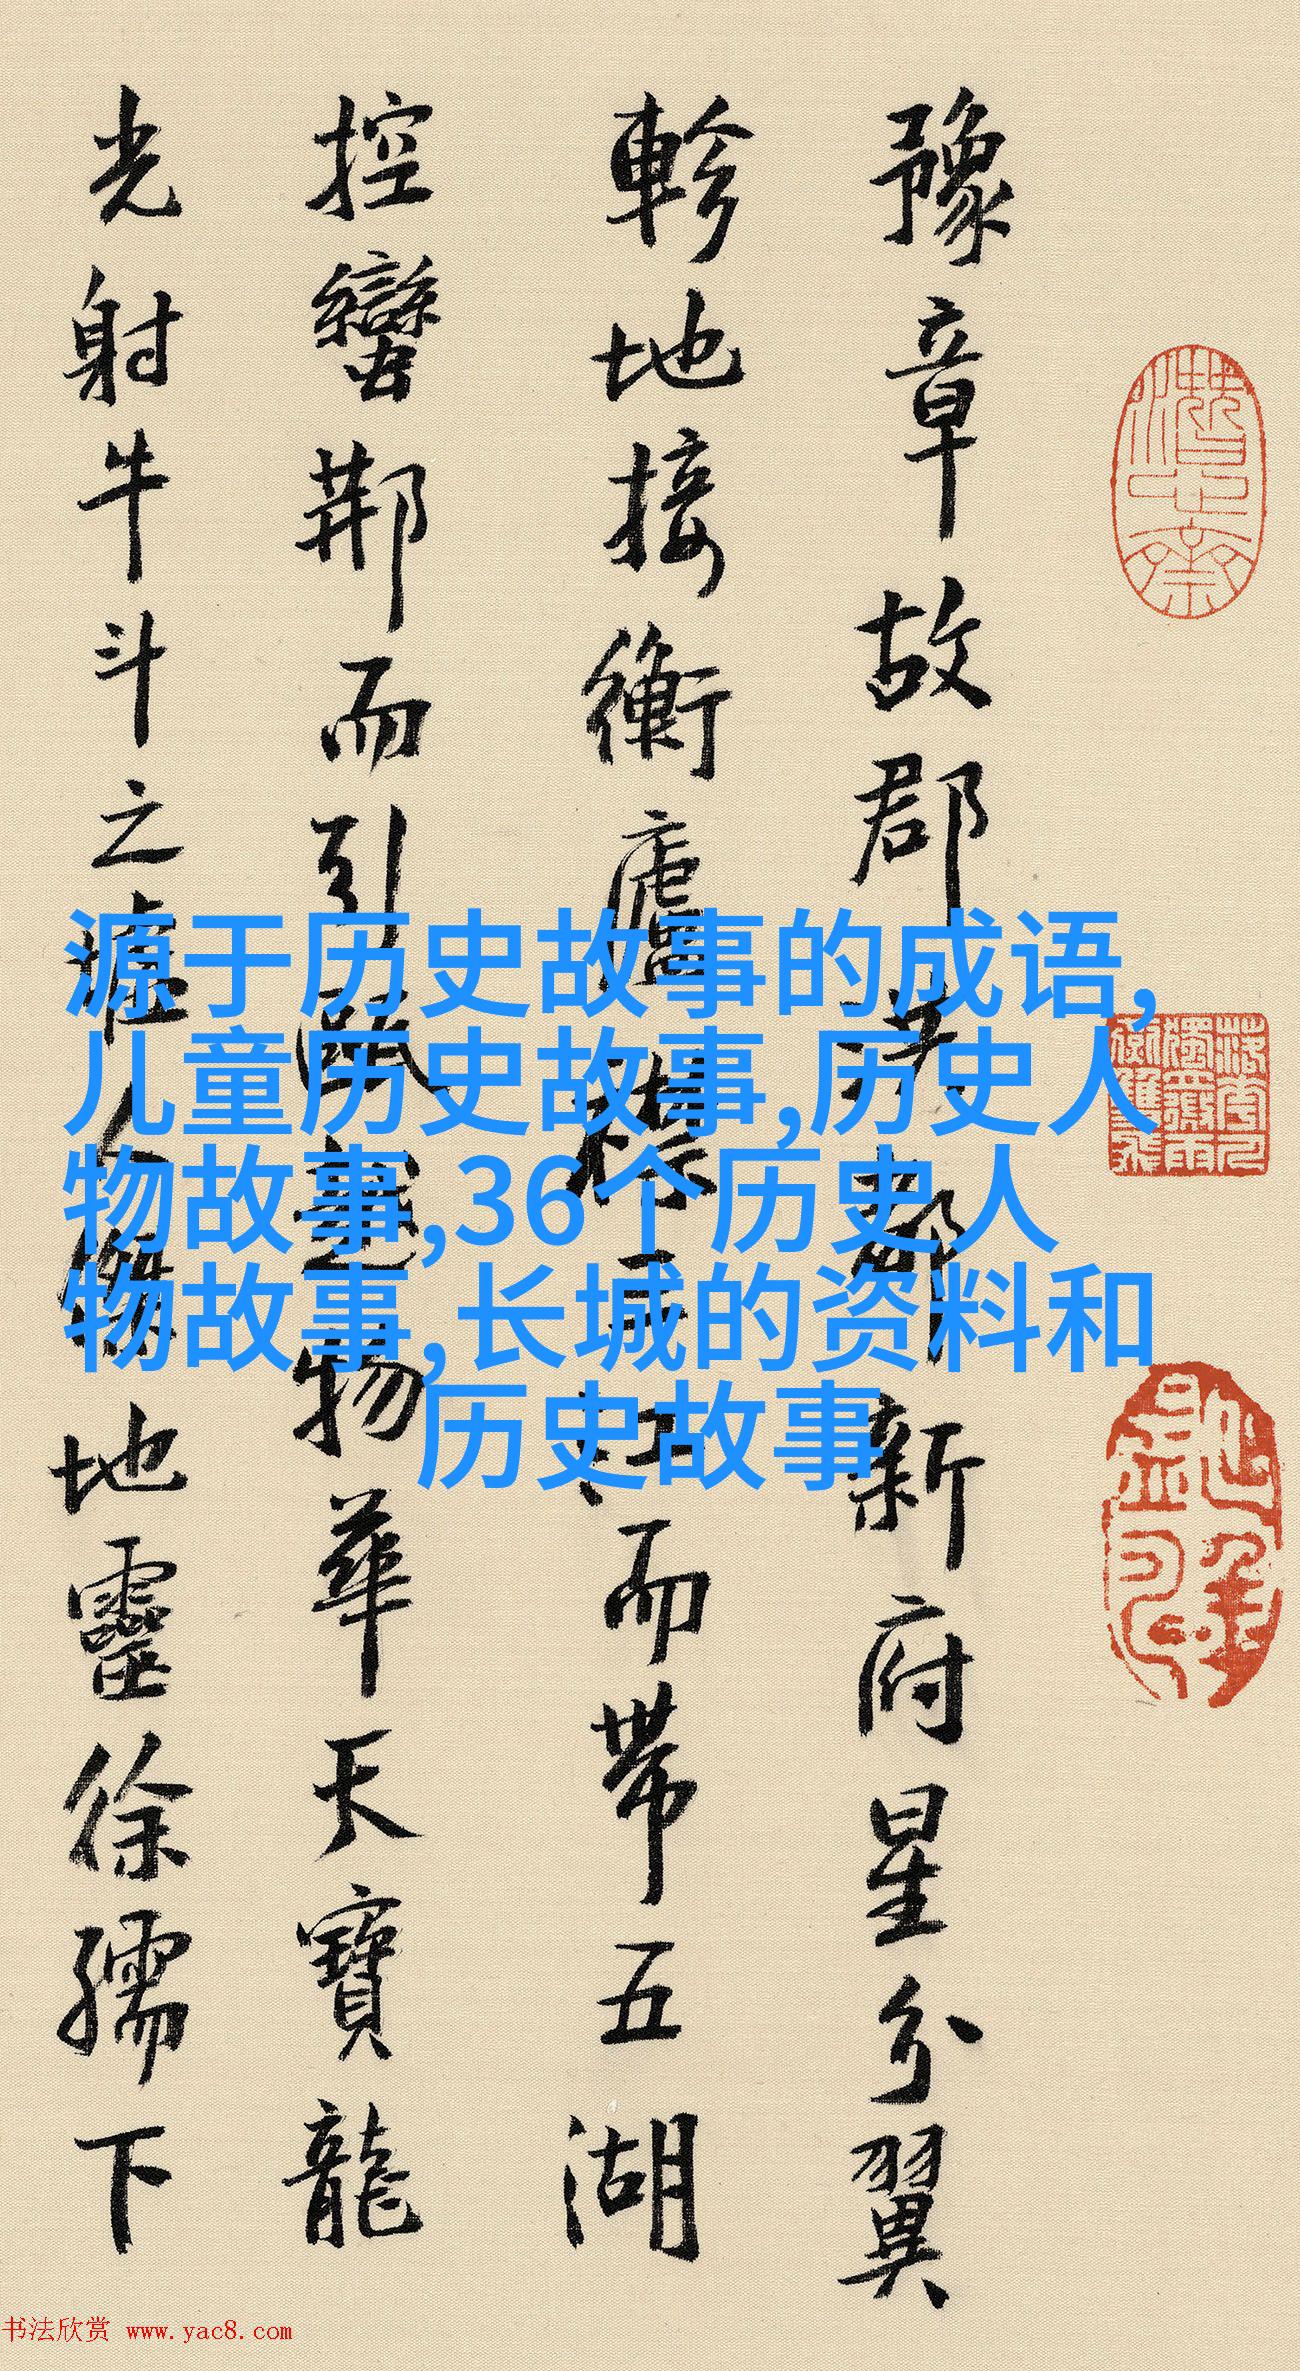 豫章故郡洪都新府星分翼
軫地接衡廬襟三江而帶五湖
控蠻荆而引甌越物華天寶龍
光射牛斗之墟人傑地靈徐孺下
源于历史故事的成语,
儿童历史故事,历史人
物故事,36个历史人
物故事,长城的资料和
历史故事
书法欣赏 www.yac8.com